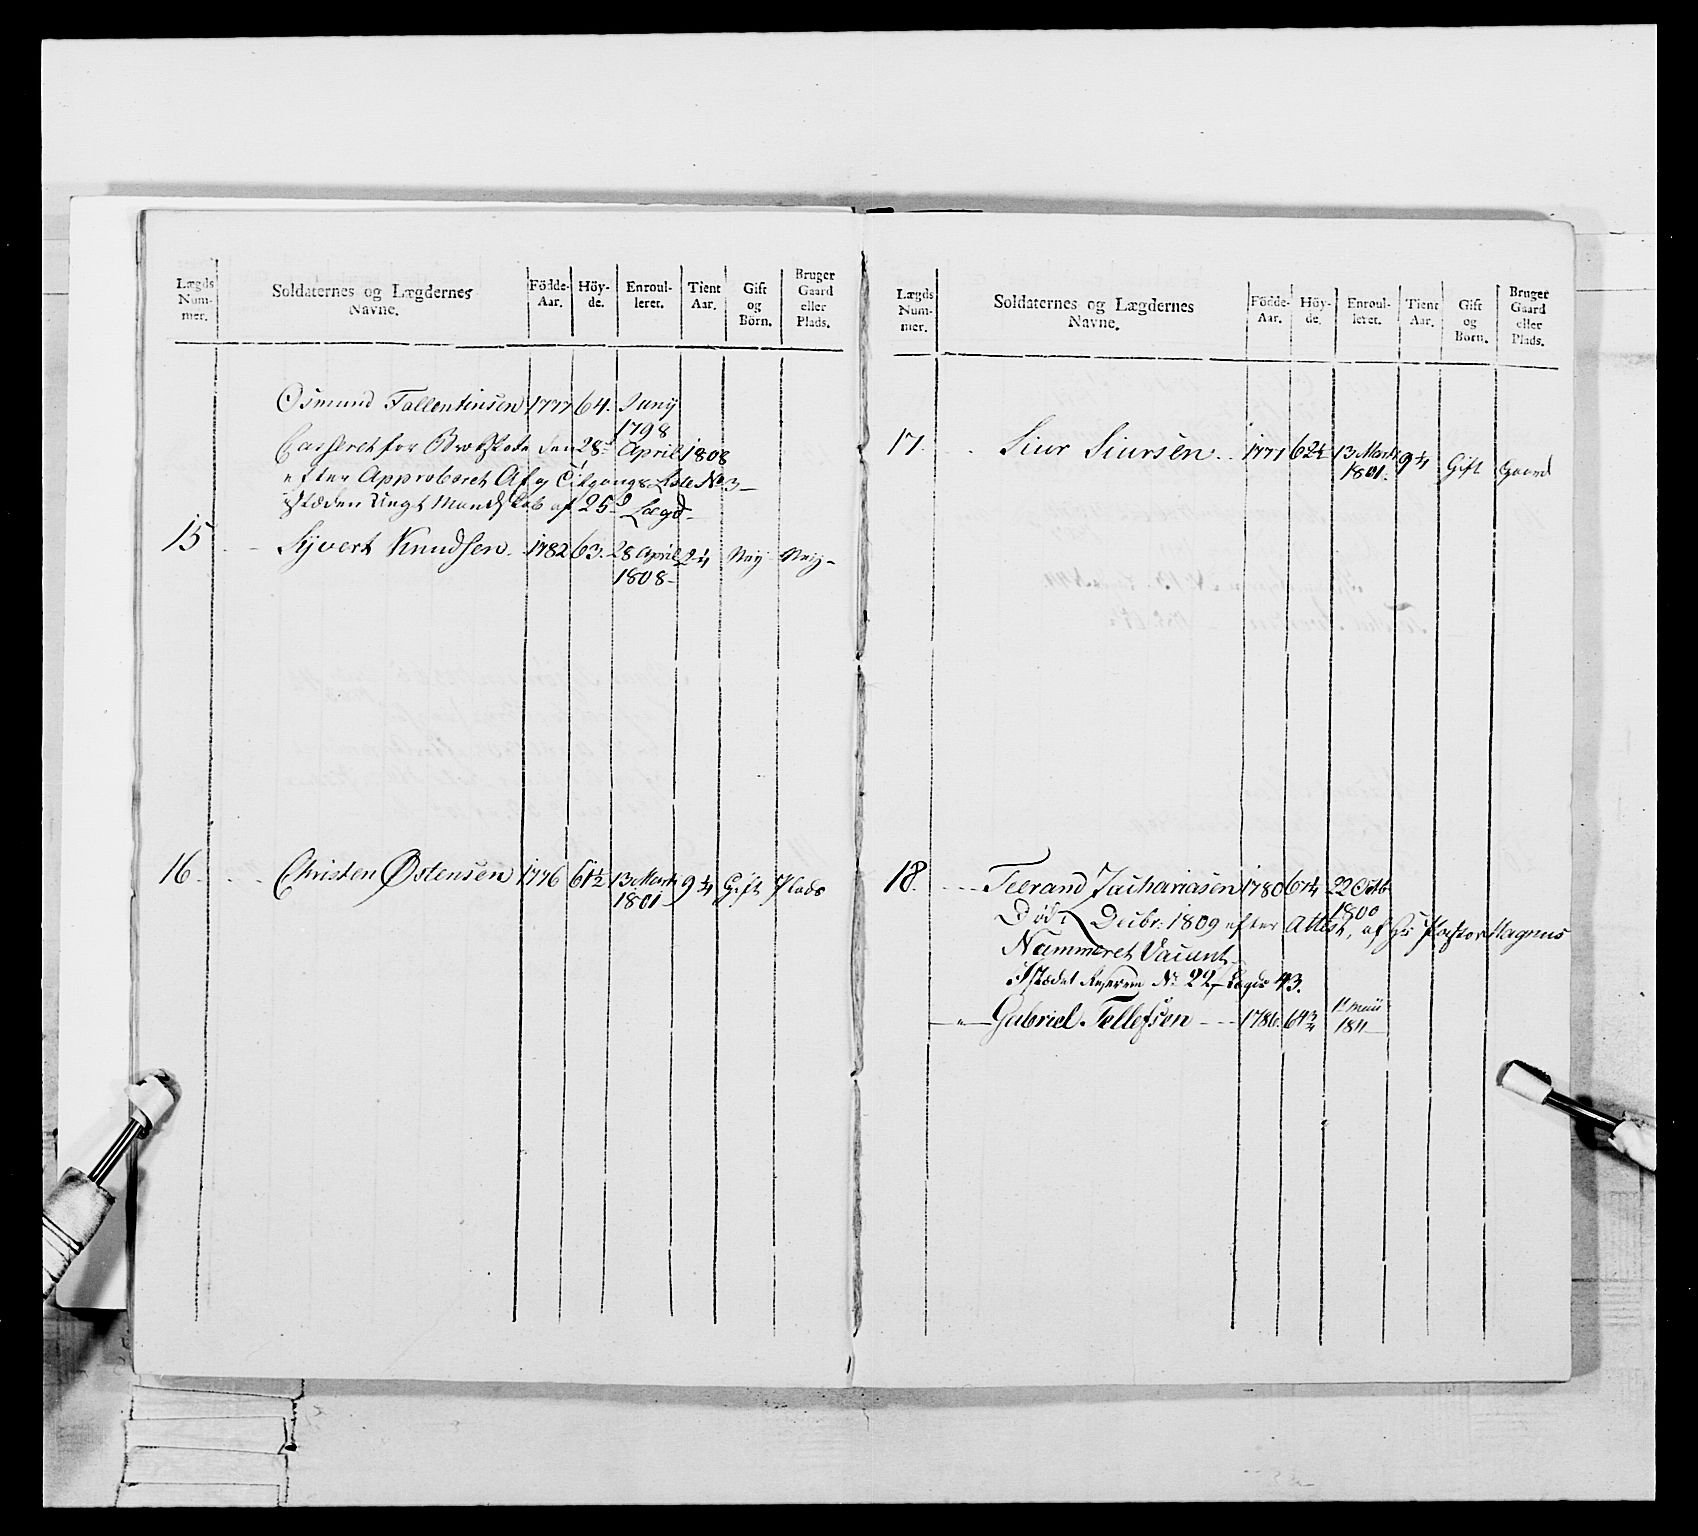 Lægds Num-mer. Soldaternes og Lægdernes Navne. Födde-Aar. Höy-de. Enroul-leret. Tient Aar. Gift og Börn. Bruger Gaard eller Plads.
Osmund Tallentinsen 1777 64. Junij
1798
Casseret for Brokskade den 28d April 1808
efter Approberet Af og Tilgangs Liste No 3 –
istæden Ungt Mandskab af 25d Lægd –
15 Syvert Knudsen. 1782 63. 28 April 2¼ Nej Nej –
1808 –
16 Christen Østensen 1776 61½ 13 Marti 9¼ Gift Plads
1801
Lægds Num-mer. Soldaternes og Lægdernes Navne. Födde-Aar. Höy-de. Enroul-leret. Tient Aar. Gift og Börn. Bruger Gaard eller Plads.
17. Siur Siursen 1771 62½ 13 Marti 9¼ Gift Gaard
1801.
18. Teerand Zachariasen 1780 61¼ 22 Octb
1800
Död Decbr: 1809 efter Attest, af Hr Pastor Magnus
Nummeret Vacant –
Istædet Reserven No 22, Lægds 43.
– " – Gabriel Tellefsen – – 1786. 64¾ 1t maii
1811